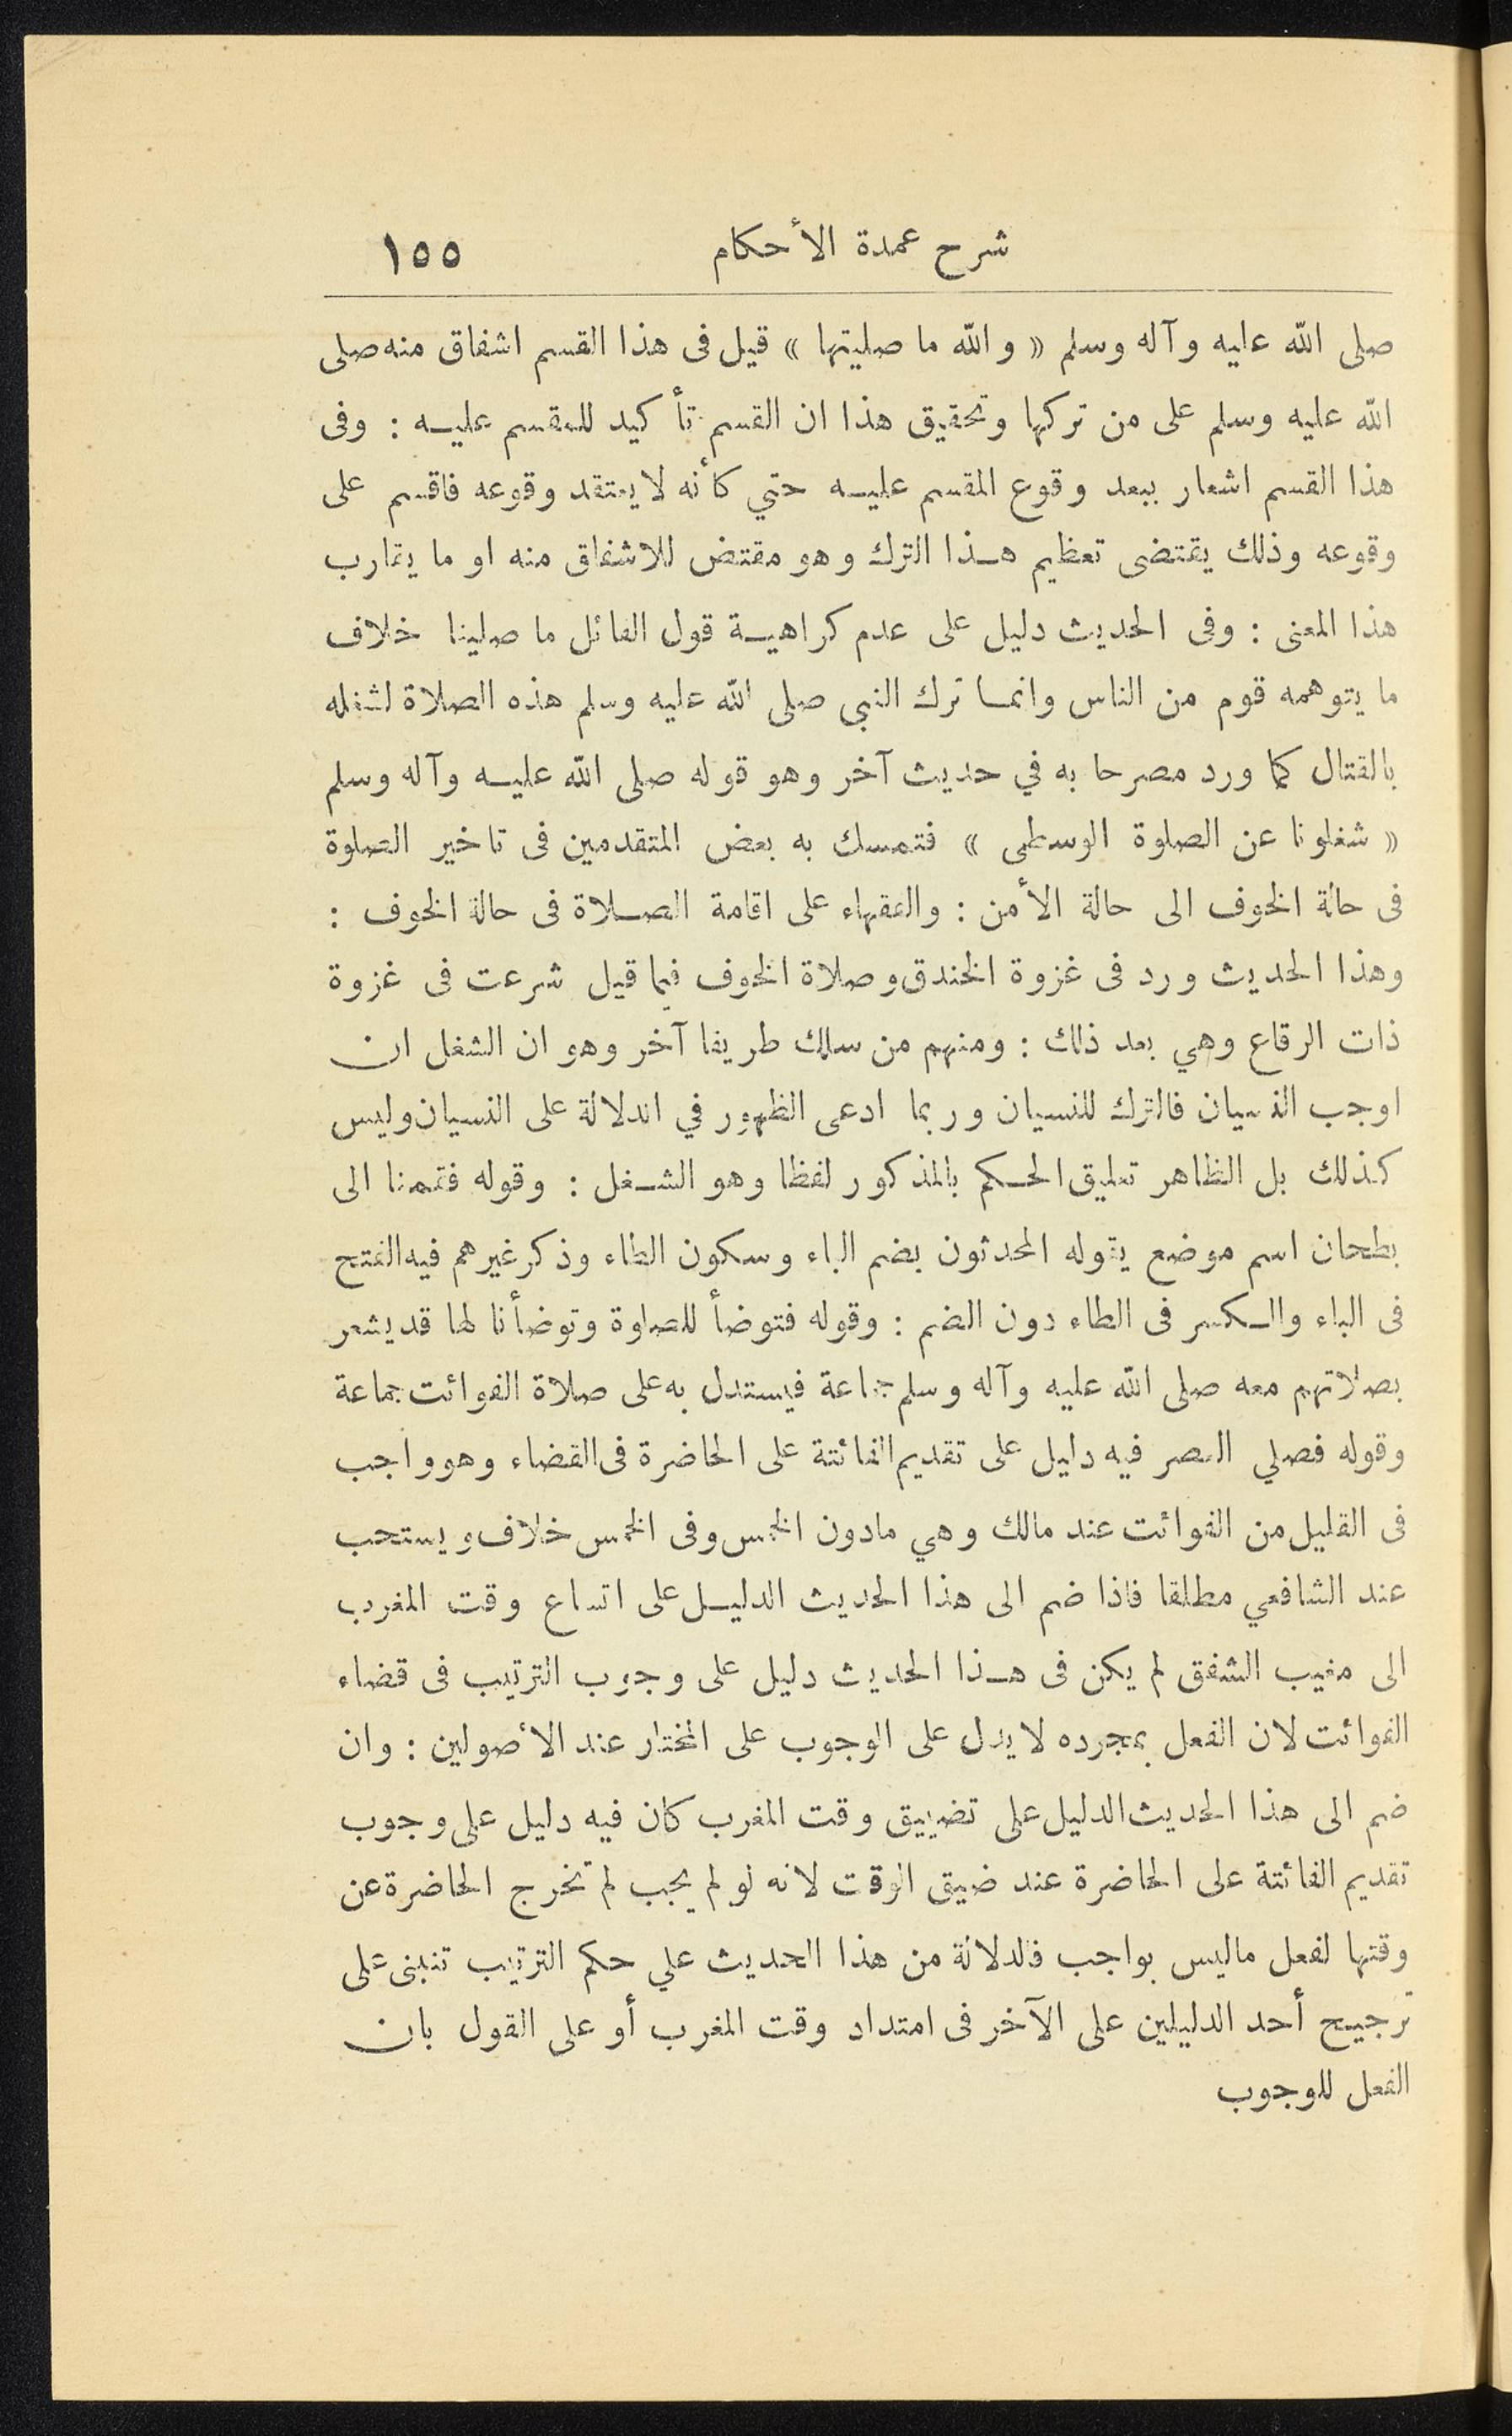 شرح عمدة الأحكام ١٥٥
صلى الله عليه وآله وسلم « والله ما صليتها » قيل فى هذا القسم اشفاق منه صلى
الله عليه وسلم على من تركها وتحقيق هذا ان القسم تأكيد للمقسم عليه : وفى
هذا القسم اشعار ببعد وقوع المقسم عليه حتي كأنه لا يعتقد وقوعه فاقسم على
وقوعه وذلك يقتضى تعظيم هذا الترك وهو مقتض للاشفاق منه او ما يقارب
هذا المعنى : وفى الحديث دليل على عدم كراهية قول القائل ما صلينا خلاف
ما يتوهمه قوم من الناس وانما ترك النبى صلى الله عليه وسلم هذه الصلاة لشغله
بالقتال كما ورد مصرحا به في حديث آخر وهو قوله صلى الله عليه وآله وسلم
« شغلونا عن الصلوة الوسطى » فتمسك به بعض المتقدمين فى تاخير الصلوة
فى حالة الخوف الى حالة الأمن : والفقهاء على اقامة الصلاة فى حالة الخوف :
وهذا الحديث ورد فى غزوة الخندق وصلاة الخوف فيما قيل شرعت فى غزوة
ذات الرقاع وهي بعد ذلك : ومنهم من سلك طريقا آخر وهو ان الشغل ان
اوجب النسيان فالترك للنسيان وربما ادعى الظهور في الدلالة على النسيان وليس
كذلك بل الظاهر تعليق الحكم بالمذكور لفظا وهو الشغل : وقوله فقمنا الى
بطحان اسم موضع يقوله المحدثون بضم الباء وسكون الطاء وذكر غيرهم فيه الفتح
فى الباء والكسر فى الطاء دون الضم : وقوله فتوضأ للصلوة وتوضأنا لها قد يشعر
بصلاتهم معه صلى الله عليه وآله وسلم جماعة فيستدل به على صلاة الفوائت جماعة
وقوله فصلي العصر فيه دليل على تقديم الفائتة على الحاضرة فى القضاء وهو واجب
فى القليل من الفوائت عند مالك وهي مادون الخمس وفى الخمس خلاف ويستحب
عند الشافعي مطلقا فاذا ضم الى هذا الحديث الدليل على اتساع وقت المغرب
الى مغيب الشفق لم يكن فى هذا الحديث دليل على وجوب الترتيب فى قضاء
الفوائت لان الفعل بمجرده لا يدل على الوجوب على المختار عند الأصولين : وان
ضم الى هذا الحديث الدليل على تضييق وقت المغرب كان فيه دليل على وجوب
تقديم الفائتة على الحاضرة عند ضيق الوقت لانه لو لم يجب لم تخرج الحاضرة عن
وقتها لفعل ماليس بواجب فالدلالة من هذا الحديث علي حكم الترتيب تنبنى على
ترجيح أحد الدليلين على الآخر فى امتداد وقت المغرب أو على القول بان
الفعل للوجوب